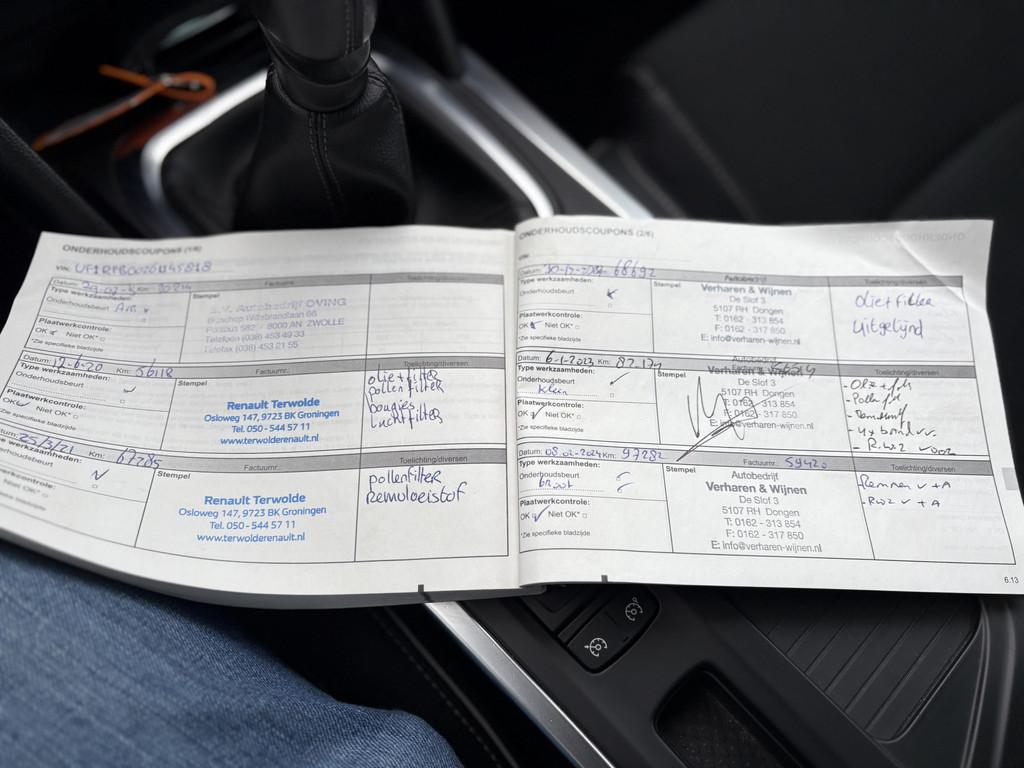 ONDERHOUDSCOUPONS (1/6)
VIN:
Datum: Km:
Factuurnr.
Toelichting/diversen
Type werkzaamheden:
Onderhoudsbeurt
Stempel
OVING
8000 AN ZWOLLE
Telefoon (038) 453 49 33
Telefax (038) 453 21 55
Plaatwerkcontrole:
OK Niet OK*
*Zie specifieke bladzijde
Datum: 12-6-20 Km: 56118
Factuurnr.
Toelichting/diversen
Type werkzaamheden:
Onderhoudsbeurt
Stempel
Renault Terwolde
Osloweg 147, 9723 BK Groningen
Tel. 050 - 544 57 11
www.terwolderenault.nl
olie + filter
pollenfilter
bougies
luchtfilter
Plaatwerkcontrole:
OK Niet OK*
*Zie specifieke bladzijde
25/3/21 Km: 67285
Factuurnr.
Toelichting/diversen
werkzaamheden:
Stempel
Renault Terwolde
Osloweg 147, 9723 BK Groningen
Tel. 050 - 544 57 11
www.terwolderenault.nl
pollenfilter
Remvloeistof
ONDERHOUDSCOUPONS (2/6)
VIN:
Datum: Km: 68692
Factuurnr.
Toelichting/diversen
Type werkzaamheden:
Onderhoudsbeurt
Stempel
Verharen & Wijnen
De Slof 3
5107 RH Dongen
T: 0162 - 313 854
F: 0162 - 317 850
E: info@verharen-wijnen.nl
olie + filter
uitgelijnd
Plaatwerkcontrole:
OK Niet OK*
*Zie specifieke bladzijde
Datum: 6-1-2023 Km:
Toelichting/diversen
Type werkzaamheden:
Onderhoudsbeurt
Klein
Stempel
Autobedrijf
Verharen & Wijnen
De Slof 3
5107 RH Dongen
T: 0162 - 313 854
F: 0162 - 317 850
E: info@verharen-wijnen.nl
Plaatwerkcontrole:
OK Niet OK*
*Zie specifieke bladzijde
Datum: 08-02-2024 Km: 97282
Factuurnr. 59420
Toelichting/diversen
Type werkzaamheden:
Onderhoudsbeurt
groot
Stempel
Autobedrijf
Verharen & Wijnen
De Slof 3
5107 RH Dongen
T: 0162 - 313 854
F: 0162 - 317 850
E: info@verharen-wijnen.nl
Remmen v + A
Plaatwerkcontrole:
OK Niet OK*
*Zie specifieke bladzijde
6.13